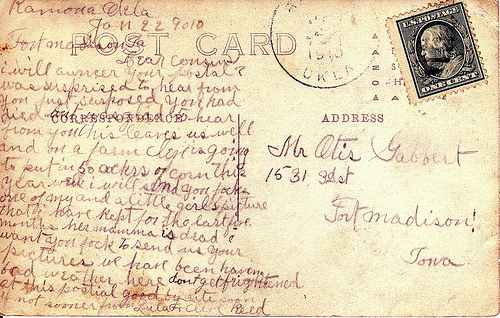 Ramona Okla
Jan 22 9010
Fort madison Ia
POST CARD
Dear cousin
i will auncer your postal?
was surprised to hear from
you Just surposed you had
died
to hear
CORRESPONDENCE
from you this leaves us well
and on a farm is going
to put in 50 ackers of corn this
year well i will send you jack
one of my and a little girls picture
that i have kept for the last five
months her mamma is dead?
want you jack to send us your
picttures we have been having
bad weather here dont get frightened
at this postal good by rite soon
if not sooner from Lula & Cleve Reed
1910
OKLA
RAMONA
OKLA
U.S. POSTAGE
ONE CENT
ADDRESS
Mr Otis Gabbert
1531 3d st
Fort madison!
Iowa